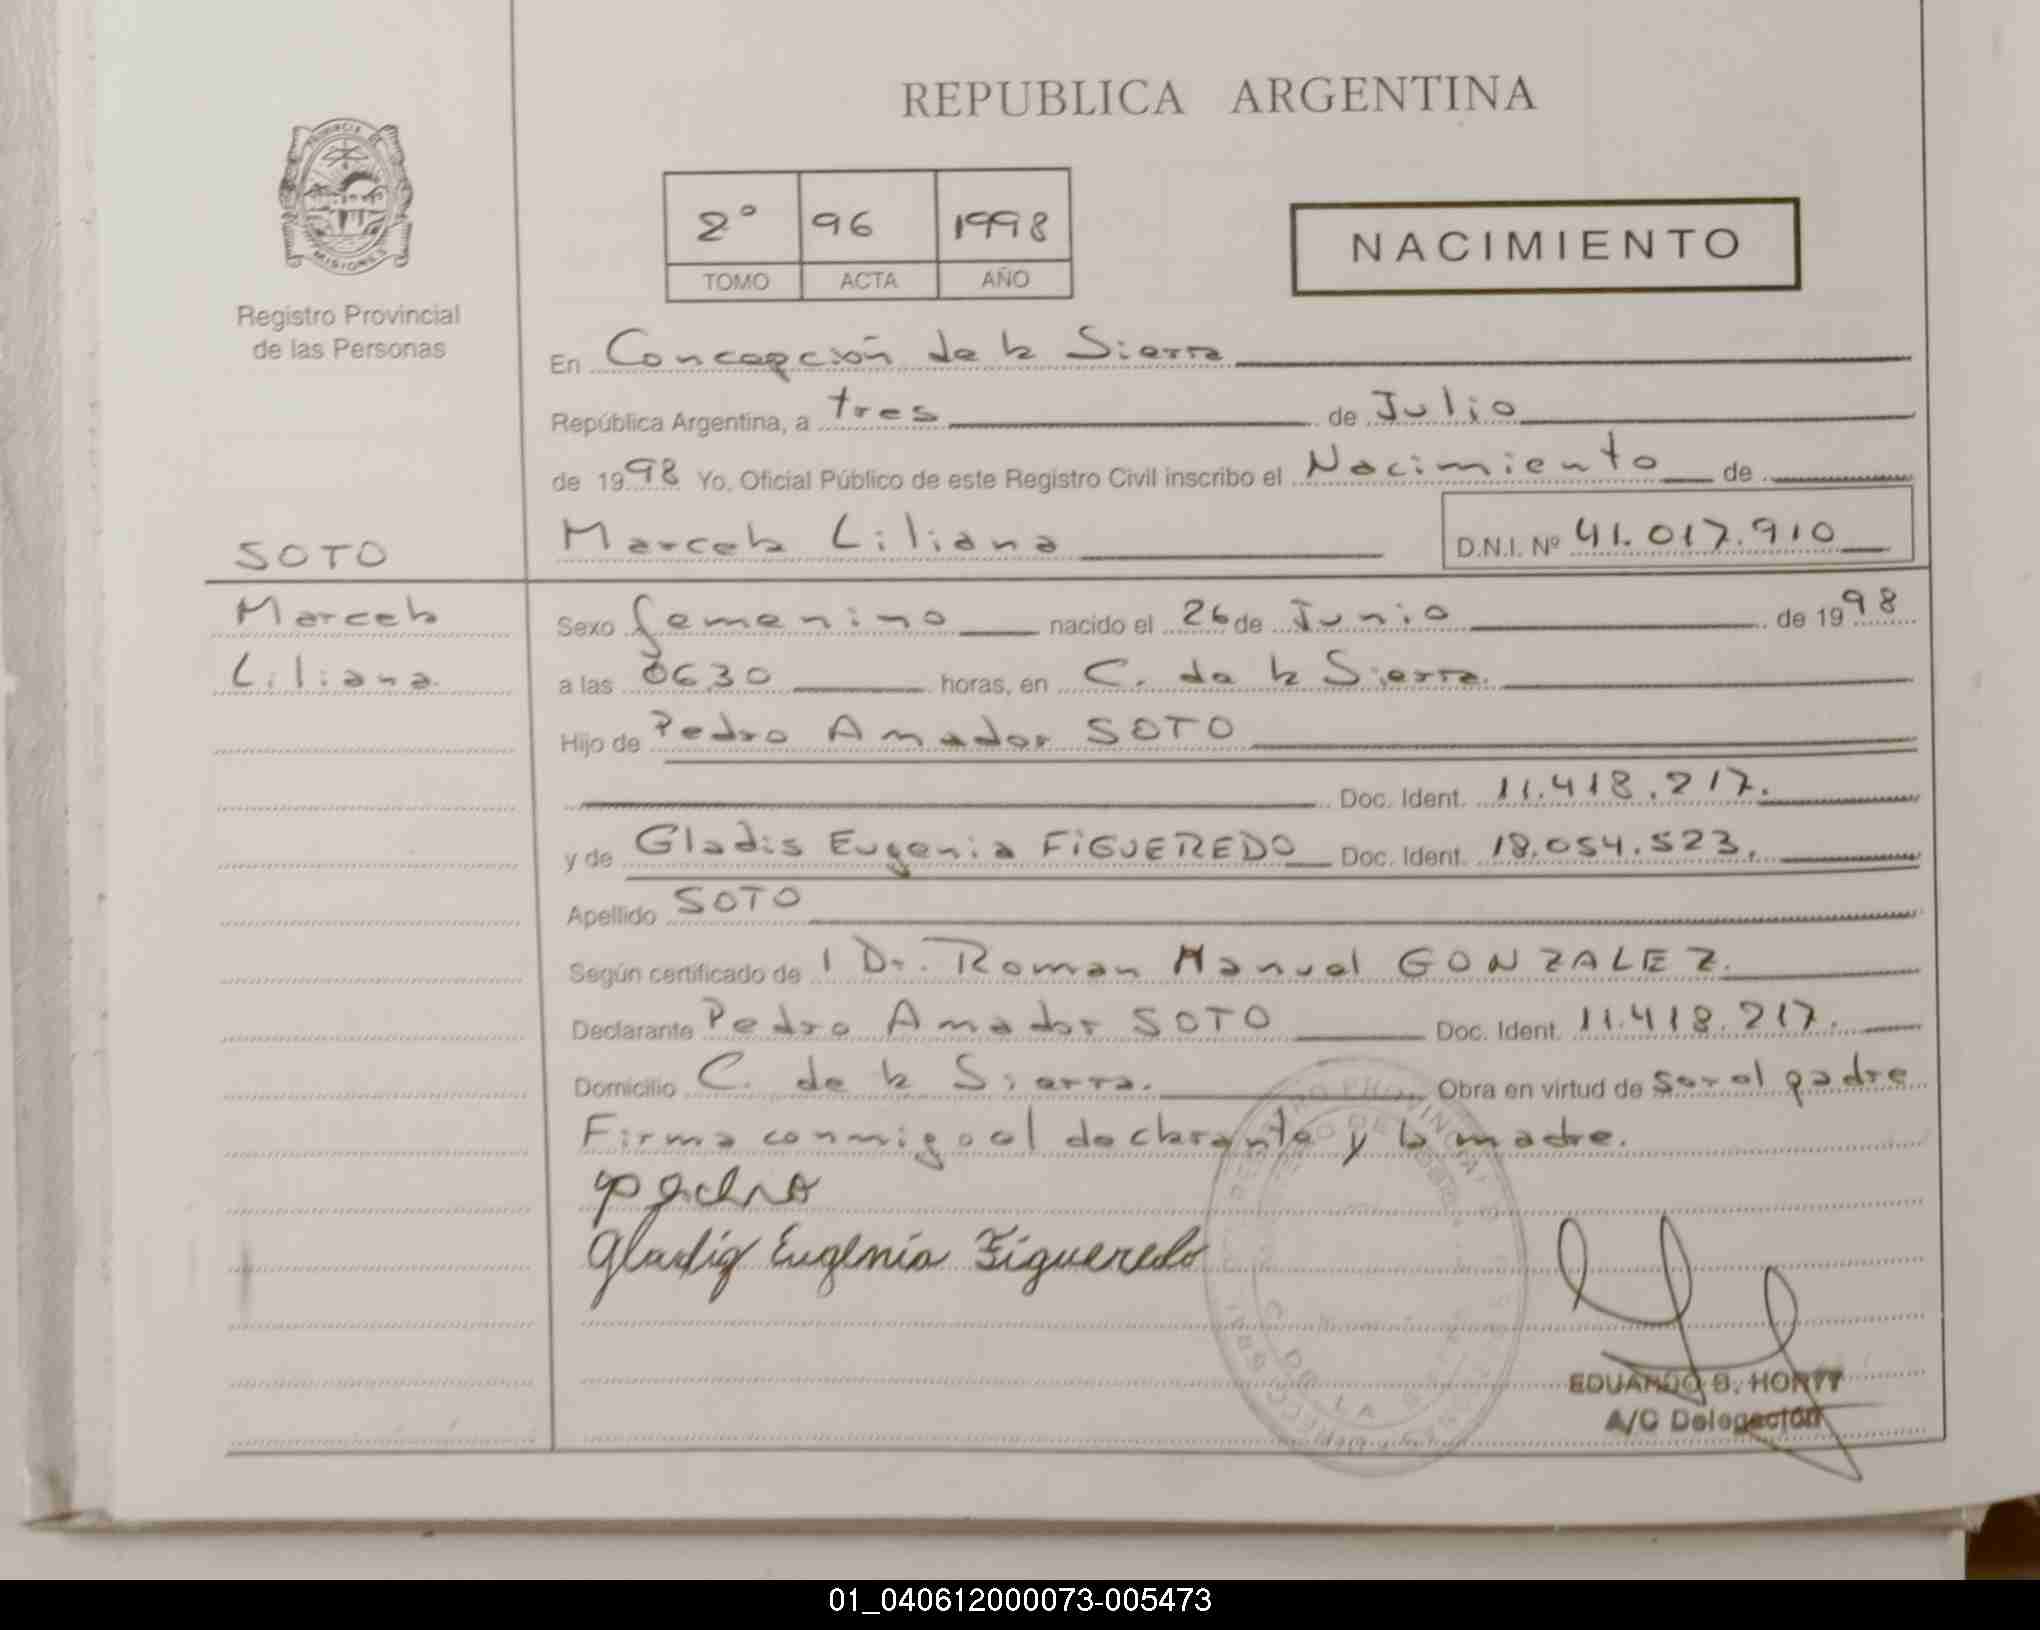 REPUBLICA ARGENTINA
PROVINCIA DE
MISIONES
Registro Provincial
de las Personas
2° 96 1998
TOMO ACTA AÑO
NACIMIENTO
En Concepción de la Sierra
República Argentina, a tres de Julio
de 1998 Yo, Oficial Público de este Registro Civil inscribo el Nacimiento de
SOTO
Marcela Liliana D.N.I. Nº 41.017.910
Marcela
Liliana.
Sexo femenino nacido el 26 de Junio de 1998
a las 0630 horas, en C. de la Sierra.
Hijo de Pedro Amador SOTO
Doc. Ident. 11.418.217.
y de Gladis Eugenia FiGUEREDO Doc. Ident. 18.054.523.
Apellido SOTO
Según certificado de l Dr. Roman Manuel GONZALEZ.
Declarante Pedro Amador SOTO Doc. Ident. 11.418.217.
Domicilio C. de la Sierra. Obra en virtud de ser el padre
Firma conmigo el declarante y la madre.
Pedro
Gladis Eugenia Figueredo
EDUARDO
A/C Delegación
01_040612000073-005473